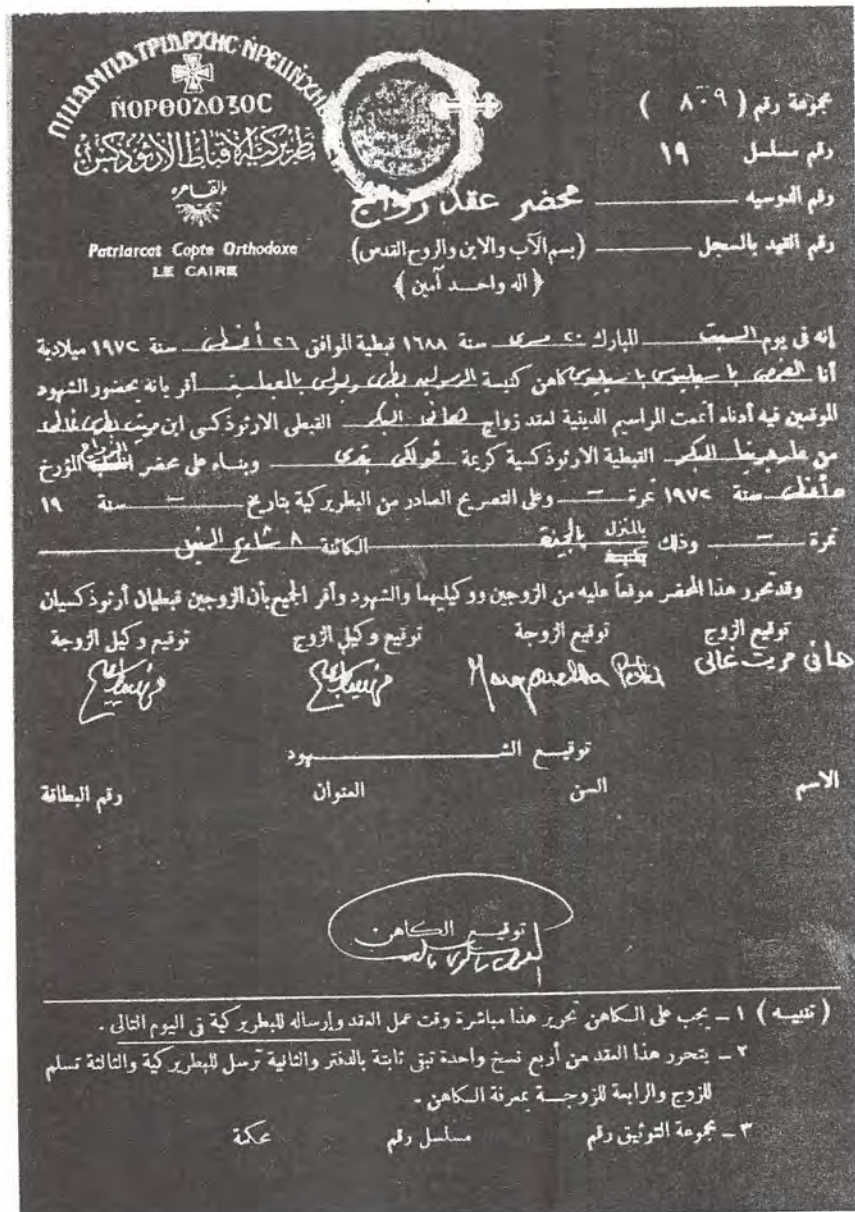 ⲠⲒⲠⲀⲦⲢⲒⲀⲢⲬⲎⲤ
ⲚⲞⲢⲐⲞⲆⲞⲜⲞⲤ
بطريركية الأقباط الأرثوذكس
بالقاهرة
Patriarcat Copte Orthodoxe
LE CAIRE
مجموعة رقم ( ٨٠٩ )
رقم مسلسل ١٩
رقم الدوسيه
رقم القيد بالسجل
محضر عقد زواج
(بسم الآب والابن والروح القدس)
(اله واحـد آمين)
إنه فى يوم السبت المبارك ٢٠ مسرى سنة ١٦٨٨ قبطية الموافق ٢٦ أغسطس سنة ١٩٧٢ ميلادية
أنا القمص باسيليوس باسيليوس كاهن كنيسة الرسولين بطرس وبولس بالعباسية أقر بانه بحضور الشهود
الموقعين فيه أدناه أتممت المراسيم الدينية لعقد زواج هانى البكر القبطى الارثوذكسى ابن مريت بطرس غالى
من البكر القبطية الارثوذكسية كريمة وبناء على محضر الزواج المؤرخ
أغسطس سنة ١٩٧٢ نمرة — وعلى التصريح الصادر من البطريركية بتاريخ — سنة ١٩
نمرة — وذلك بالمنزل بالجيزة الكائنة ٨ شارع النيل
وقد تحرر هذا المحضر موقعاً عليه من الزوجين ووكيليهما والشهود وأقر الجميع بأن الزوجين قبطيان أرثوذكسيان
توقيع الزوج توقيع الزوجة توقيع وكيل الزوج توقيع وكيل الزوجة
هانى مريت غالى
توقيـع الشـهود
الاسم السن العنوان رقم البطاقة
توقيـع الكاهن
( تنبيـه ) ١ ـ يجب على الـكاهن تحرير هذا مباشرة وقت عمل العقد وإرساله للبطريركية فى اليوم التالى .
٢ ـ يتحرر هذا العقد من أربع نسخ واحدة تبقى ثابتة بالدفتر والثانية ترسل للبطريركية والثالثة تسلم
للزوج والرابعة للزوجـــة بمعرفة الكاهن ـ
٣ ـ مجموعة التوثيق رقم مسلسل رقم محكمة